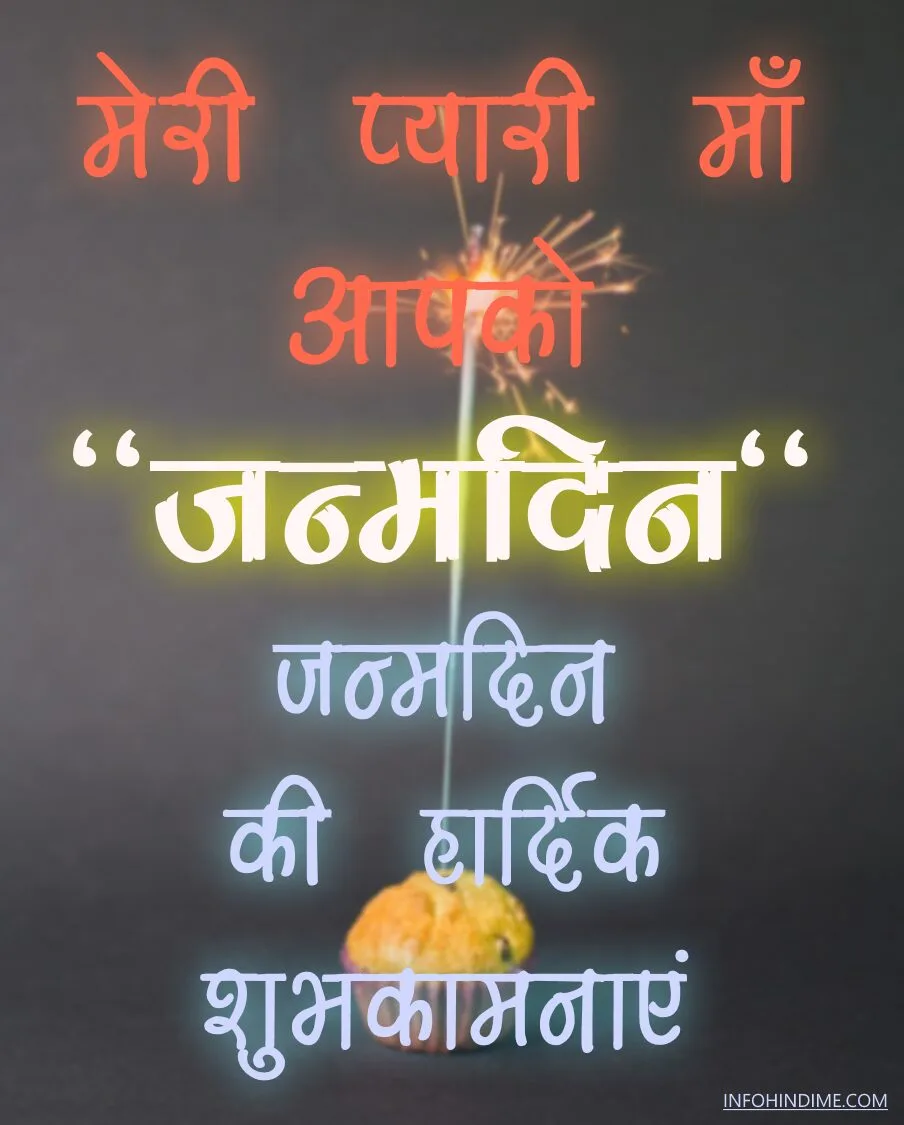 मेरी प्यारी माँ
आपको
“जन्मदिन“
जन्मदिन
की हार्दिक
शुभकामनाएं
INFOHINDIME.COM